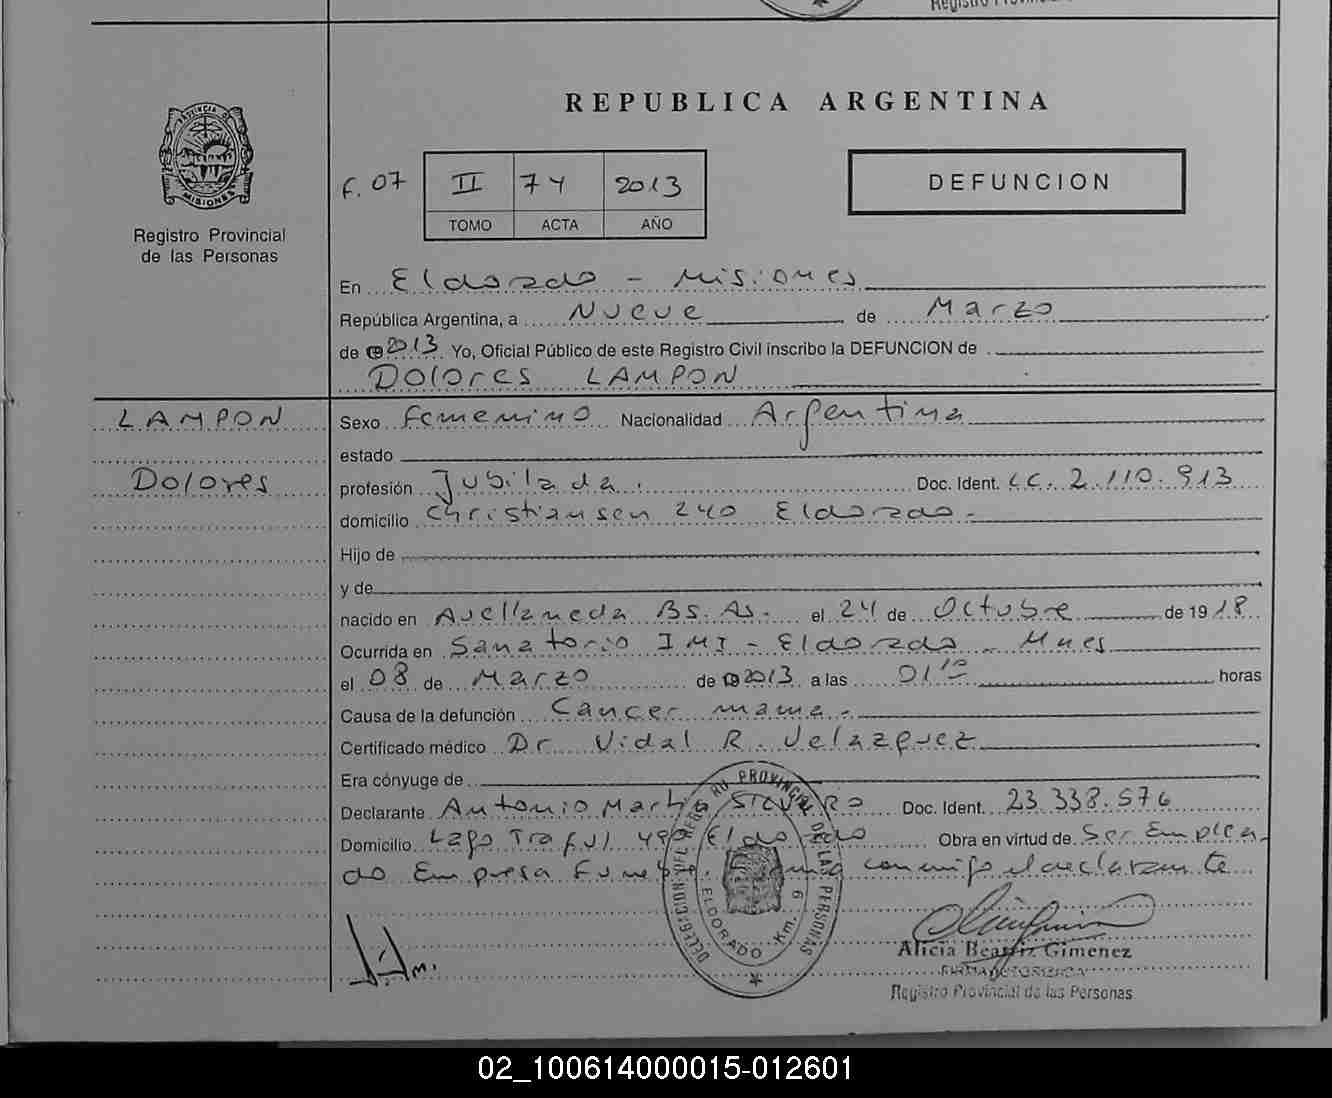 Registro Provincial
REPUBLICA ARGENTINA
PROVINCIA DE
MISIONES
Registro Provincial
de las Personas
F. 07 II 74 2013
TOMO ACTA AÑO
DEFUNCION
En Eldorado - Misiones
República Argentina, a Nueve de Marzo
de 2013 Yo, Oficial Público de este Registro Civil inscribo la DEFUNCION de
Dolores LAMPON
LAMPON
Dolores
Sexo Femenino Nacionalidad Argentina
estado
profesión Jubilada. Doc. Ident. LC. 2.110.913
domicilio Christiansen 240 Eldorado-
Hijo de
y de
nacido en Avellaneda Bs. As. el 24 de Octubre de 1918
Ocurrida en Sanatorio IMI - Eldorado - Mnes
el 08 de Marzo de 2013 a las 01¹⁰ horas
Causa de la defunción Cancer mama.
Certificado médico Dr. Vidal R. Velazquez
Era cónyuge de
Declarante Antonio Martin Doc. Ident. 23.338.576
Domicilio Lago Traful 490 Eldorado Obra en virtud de Ser Emplea-
do Empresa Funebre. Firma conmigo el declarante
DELEGACION DEL REGISTRO PROVINCIAL DE LAS PERSONAS
ELDORADO Km. 9
Alicia Beatriz Gimenez
FIRMA AUTORIZADA
Registro Provincial de las Personas
02_100614000015-012601